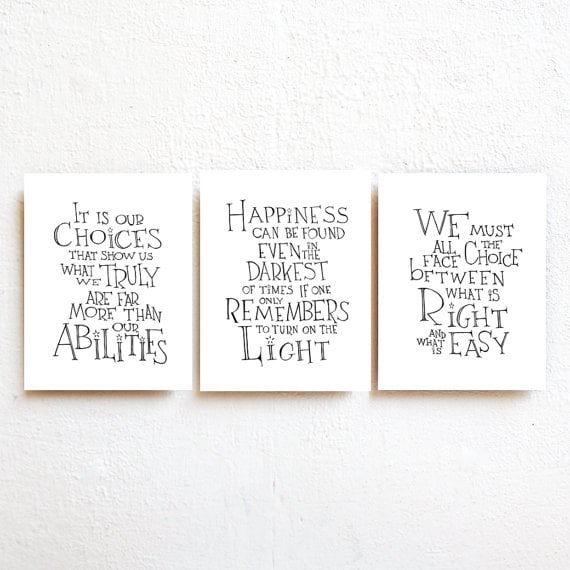 It is our
Choices
that show us
what
we Truly
are far
more than
our
Abilities
Happiness
can be found
even in the
Darkest
of times if one
only
Remembers
to turn on the
Light
We must
all the
face Choice
between
what is
Right
and
what is Easy